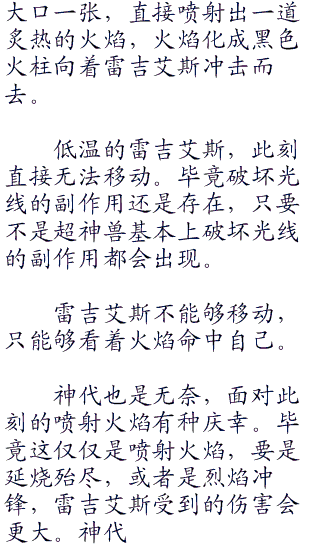 大口一张，直接喷射出一道
炙热的火焰，火焰化成黑色
火柱向着雷吉艾斯冲击而
去。
低温的雷吉艾斯，此刻
直接无法移动。毕竟破坏光
线的副作用还是存在，只要
不是超神兽基本上破坏光线
的副作用都会出现。
雷吉艾斯不能够移动，
只能够看着火焰命中自己。
神代也是无奈，面对此
刻的喷射火焰有种庆幸。毕
竟这仅仅是喷射火焰，要是
延烧殆尽，或者是烈焰冲
锋，雷吉艾斯受到的伤害会
更大。神代